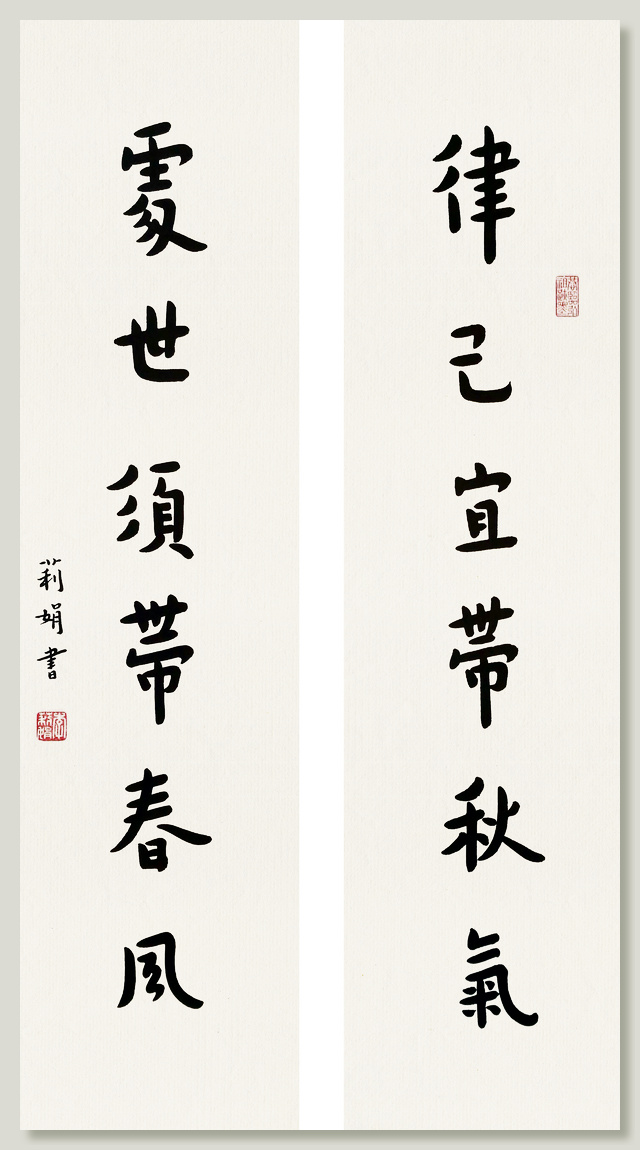 律己宜帶秋氣
處世須帶春風
莉娟書